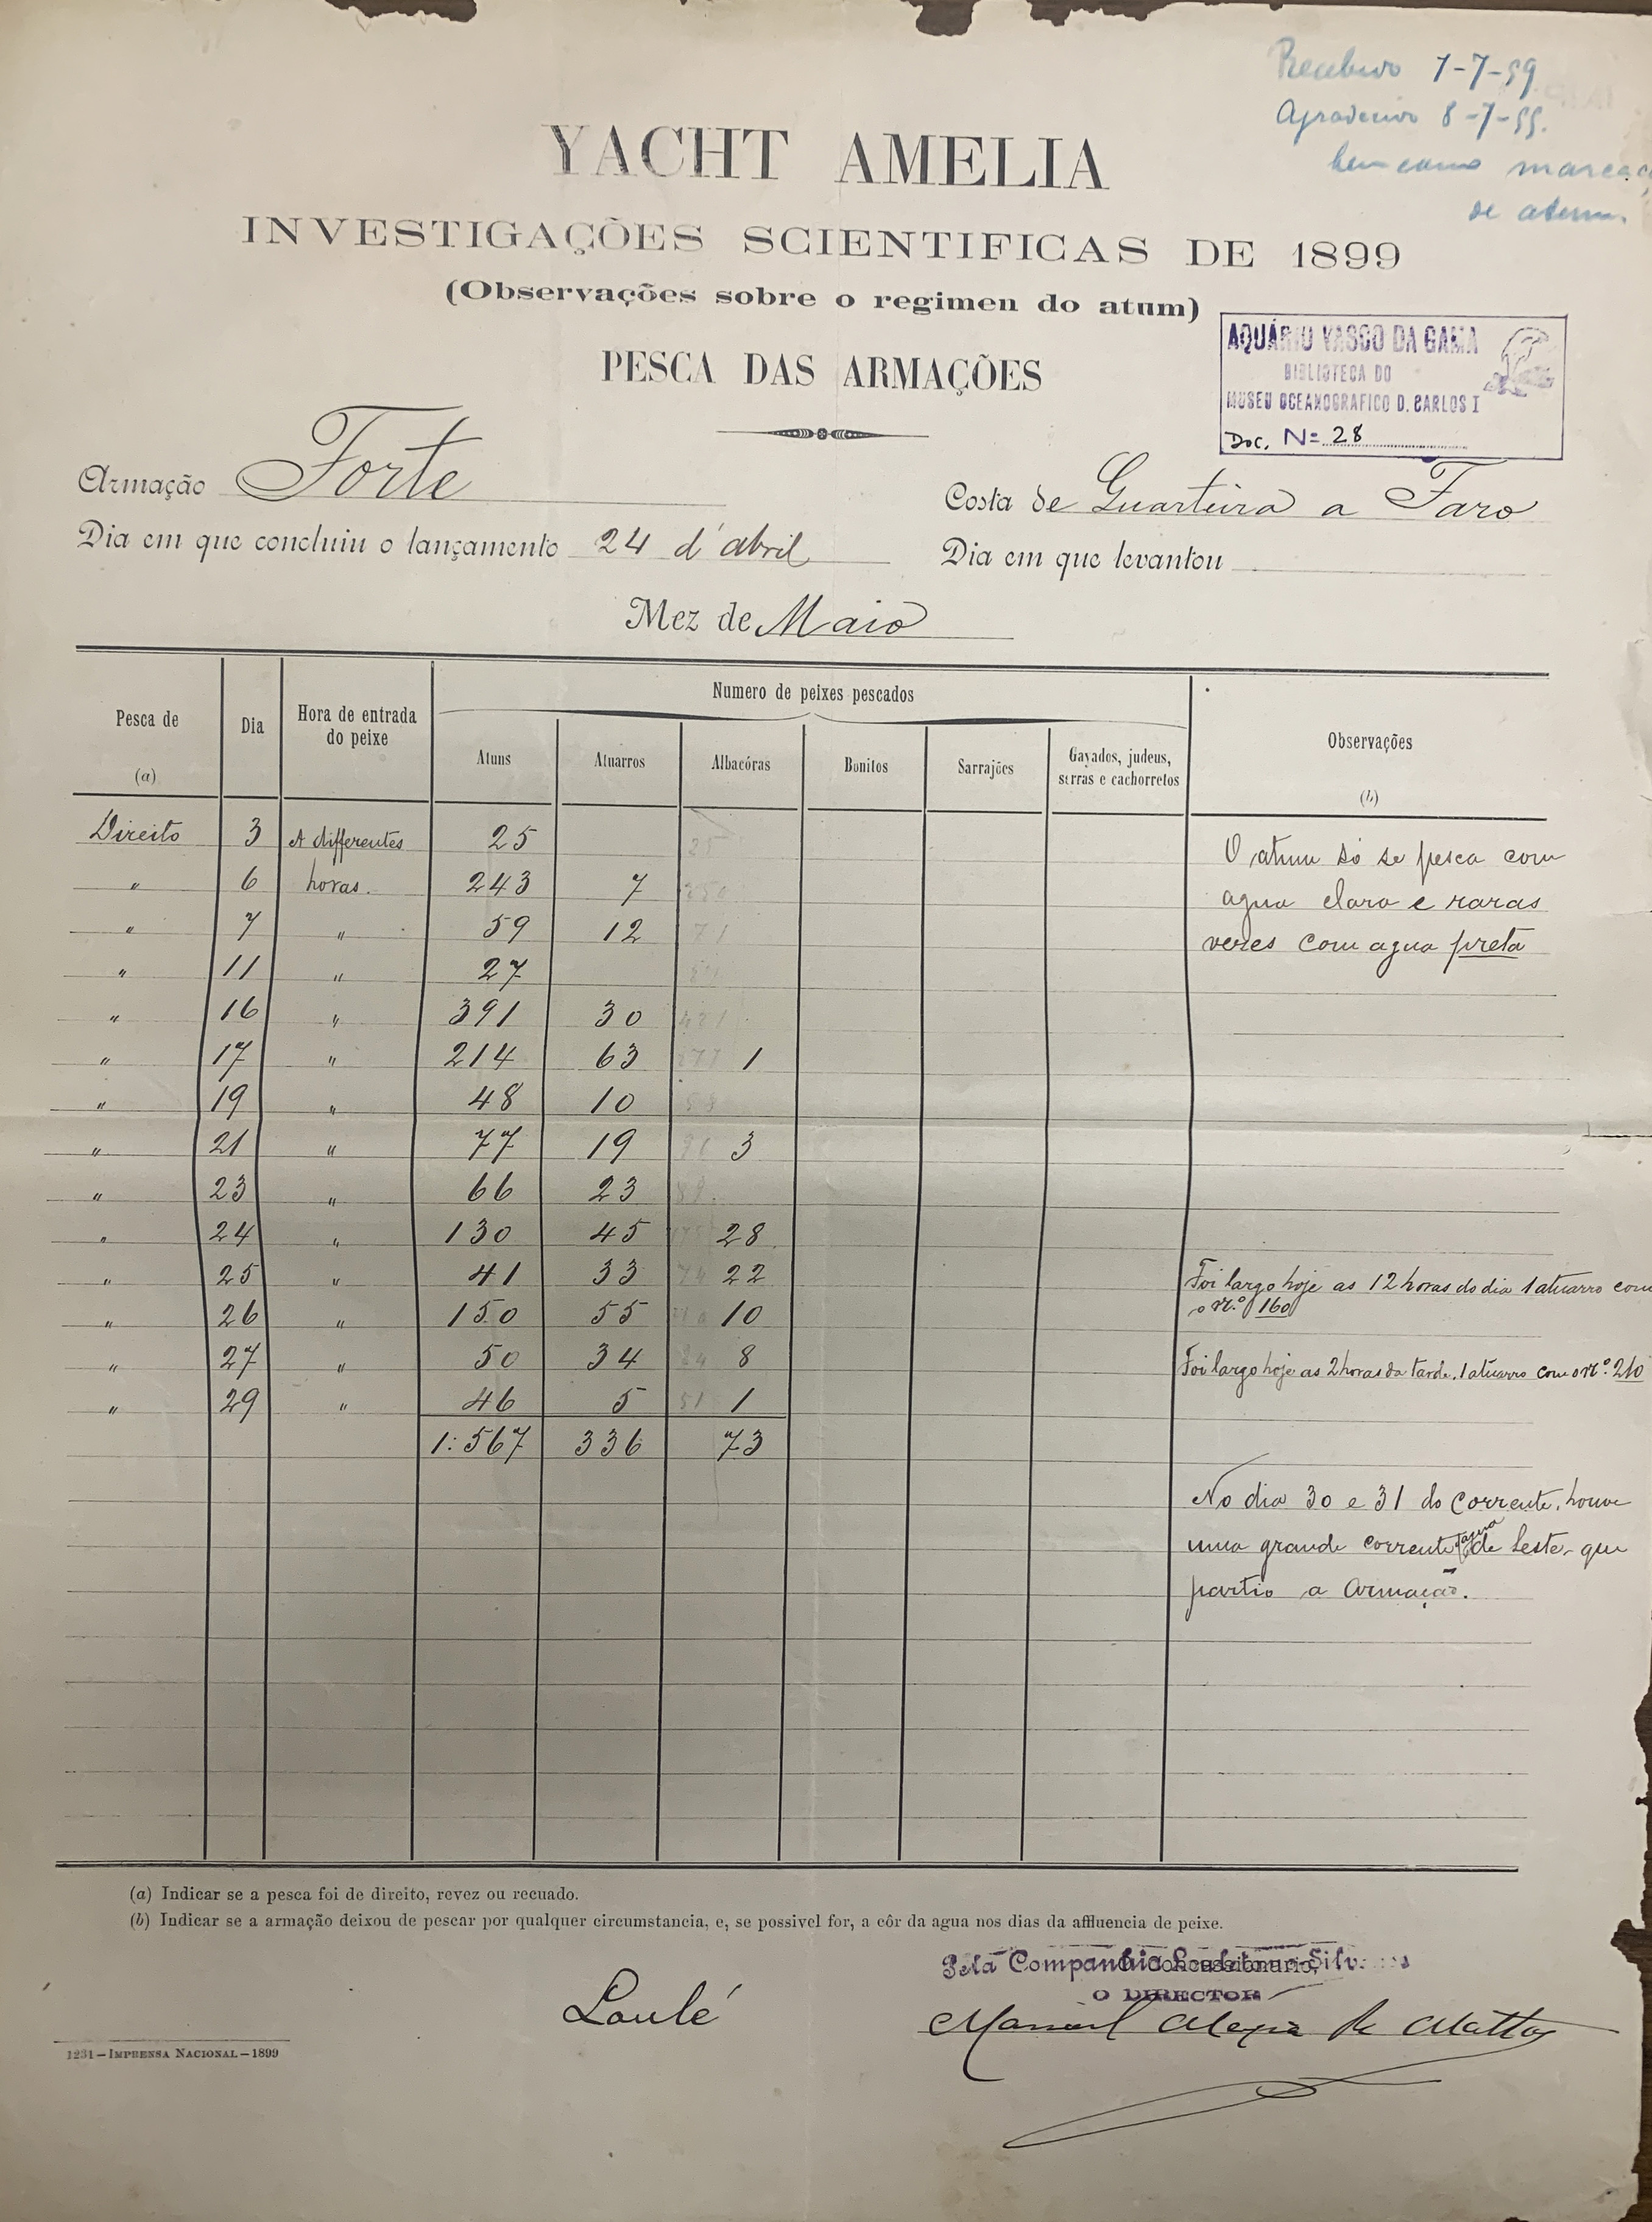 Recebido 7-7-99
Agradecido 8-7-99.
bem como marcaç
de atum.
YACHT AMELIA
INVESTIGAÇÕES SCIENTIFICAS DE 1899
(Observações sobre o regimen do atum)
PESCA DAS ARMAÇÕES
AQUÁRIO VASCO DA GAMA
BIBLIOTECA DO
MUSEU OCEANOGRAFICO D. CARLOS I
Doc. Nº 28
Armação Forte
Costa de Quarteira a Faro
Dia em que concluiu o lançamento 24 d'abril
Dia em que levantou
Mez de Maio
Pesca de (a) Dia Hora de entrada do peixe Numero de peixes pescados Observações (b)
Atuns Atuarros Albacóras Bonitos Sarrajões Gayados, judeus, serras e cachorretos
Direito 3 A differentes 25 25 O atum só se pesca com
" 6 horas. 243 7 250 agua clara e raras
" 7 " 59 12 71 vezes com agua preta
" 11 " 27
" 16 " 391 30 421
" 17 " 214 63 277 1
" 19 " 48 10 58
" 21 " 77 19 96 3
" 23 " 66 23 89
" 24 " 130 45 175 28
" 25 " 41 33 74 22 Foi largo hoje as 12 horas do dia 1 atuarro com
o nº 160
" 26 " 150 55 10
" 27 " 50 34 84 8 Foi largo hoje as 2 horas da tarde. 1 atuarro com o nº 210
" 29 " 46 5 51 1
1:567 336 73
No dia 30 e 31 do corrente, houve
uma grande corrente d'agua de Leste, que
partio a Armação.
(a) Indicar se a pesca foi de direito, revez ou recuado.
(b) Indicar se a armação deixou de pescar por qualquer circumstancia, e, se possivel for, a côr da agua nos dias da affluencia de peixe.
Pela Companhia
O DIRECTOR
Loulé
Manoel de Mattos
1231—IMPRENSA NACIONAL—1899